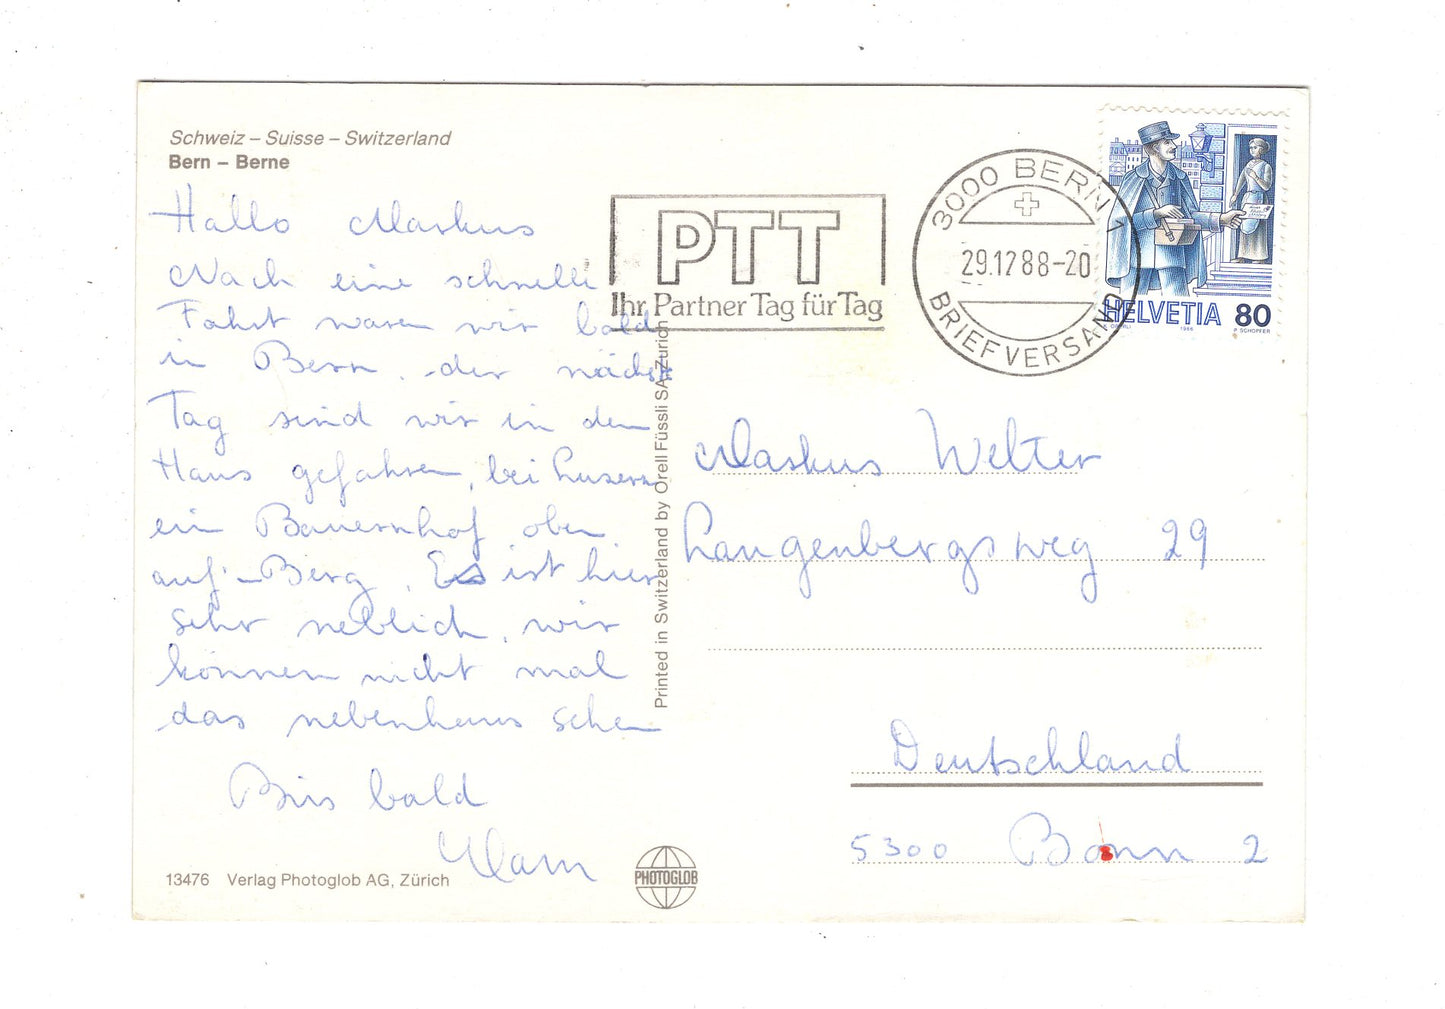 Schweiz – Suisse – Switzerland
Bern – Berne
Hallo Markus
Nach eine schnelle
Fahrt waren wir bald
in Bern. der nächst
Tag sind wir in den
Haus gefahren, bei Luzern
ein Bauernhof oben
auf'-Berg. Es ist hier
sehr neblich, wir
können nicht mal
das nebenhaus sehen
Bis bald
13476 Verlag Photoglob AG, Zürich
PHOTOGLOB
Printed in Switzerland by Orell Füssli SA, Zürich
PTT
Ihr Partner Tag für Tag
3000 BERN 1
29.12 88-20
BRIEFVERSAND
HELVETIA 80
K. OBERLI 1986 P. SCHOPFER
Markus Welter
Langenbergsweg 29
Deutschland
5300 Bonn 2